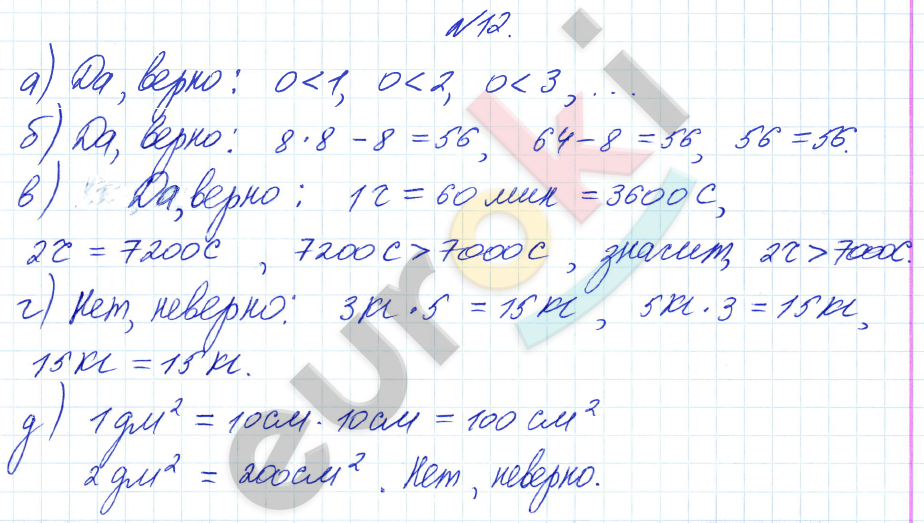 №12.
а) Да, верно: 0<1, 0<2, 0<3, ...
б) Да, верно: 8·8-8=56, 64-8=56, 56=56.
в) Да, верно: 1ч=60мин=3600с,
2ч=7200с, 7200с>7000с, значит, 2ч>7000с.
г) Нет, неверно: 3кг·5=15кг, 5кг·3=15кг,
15кг=15кг.
д) 1дм²=10см·10см=100см²
2дм²=200см². Нет, неверно.
euroki